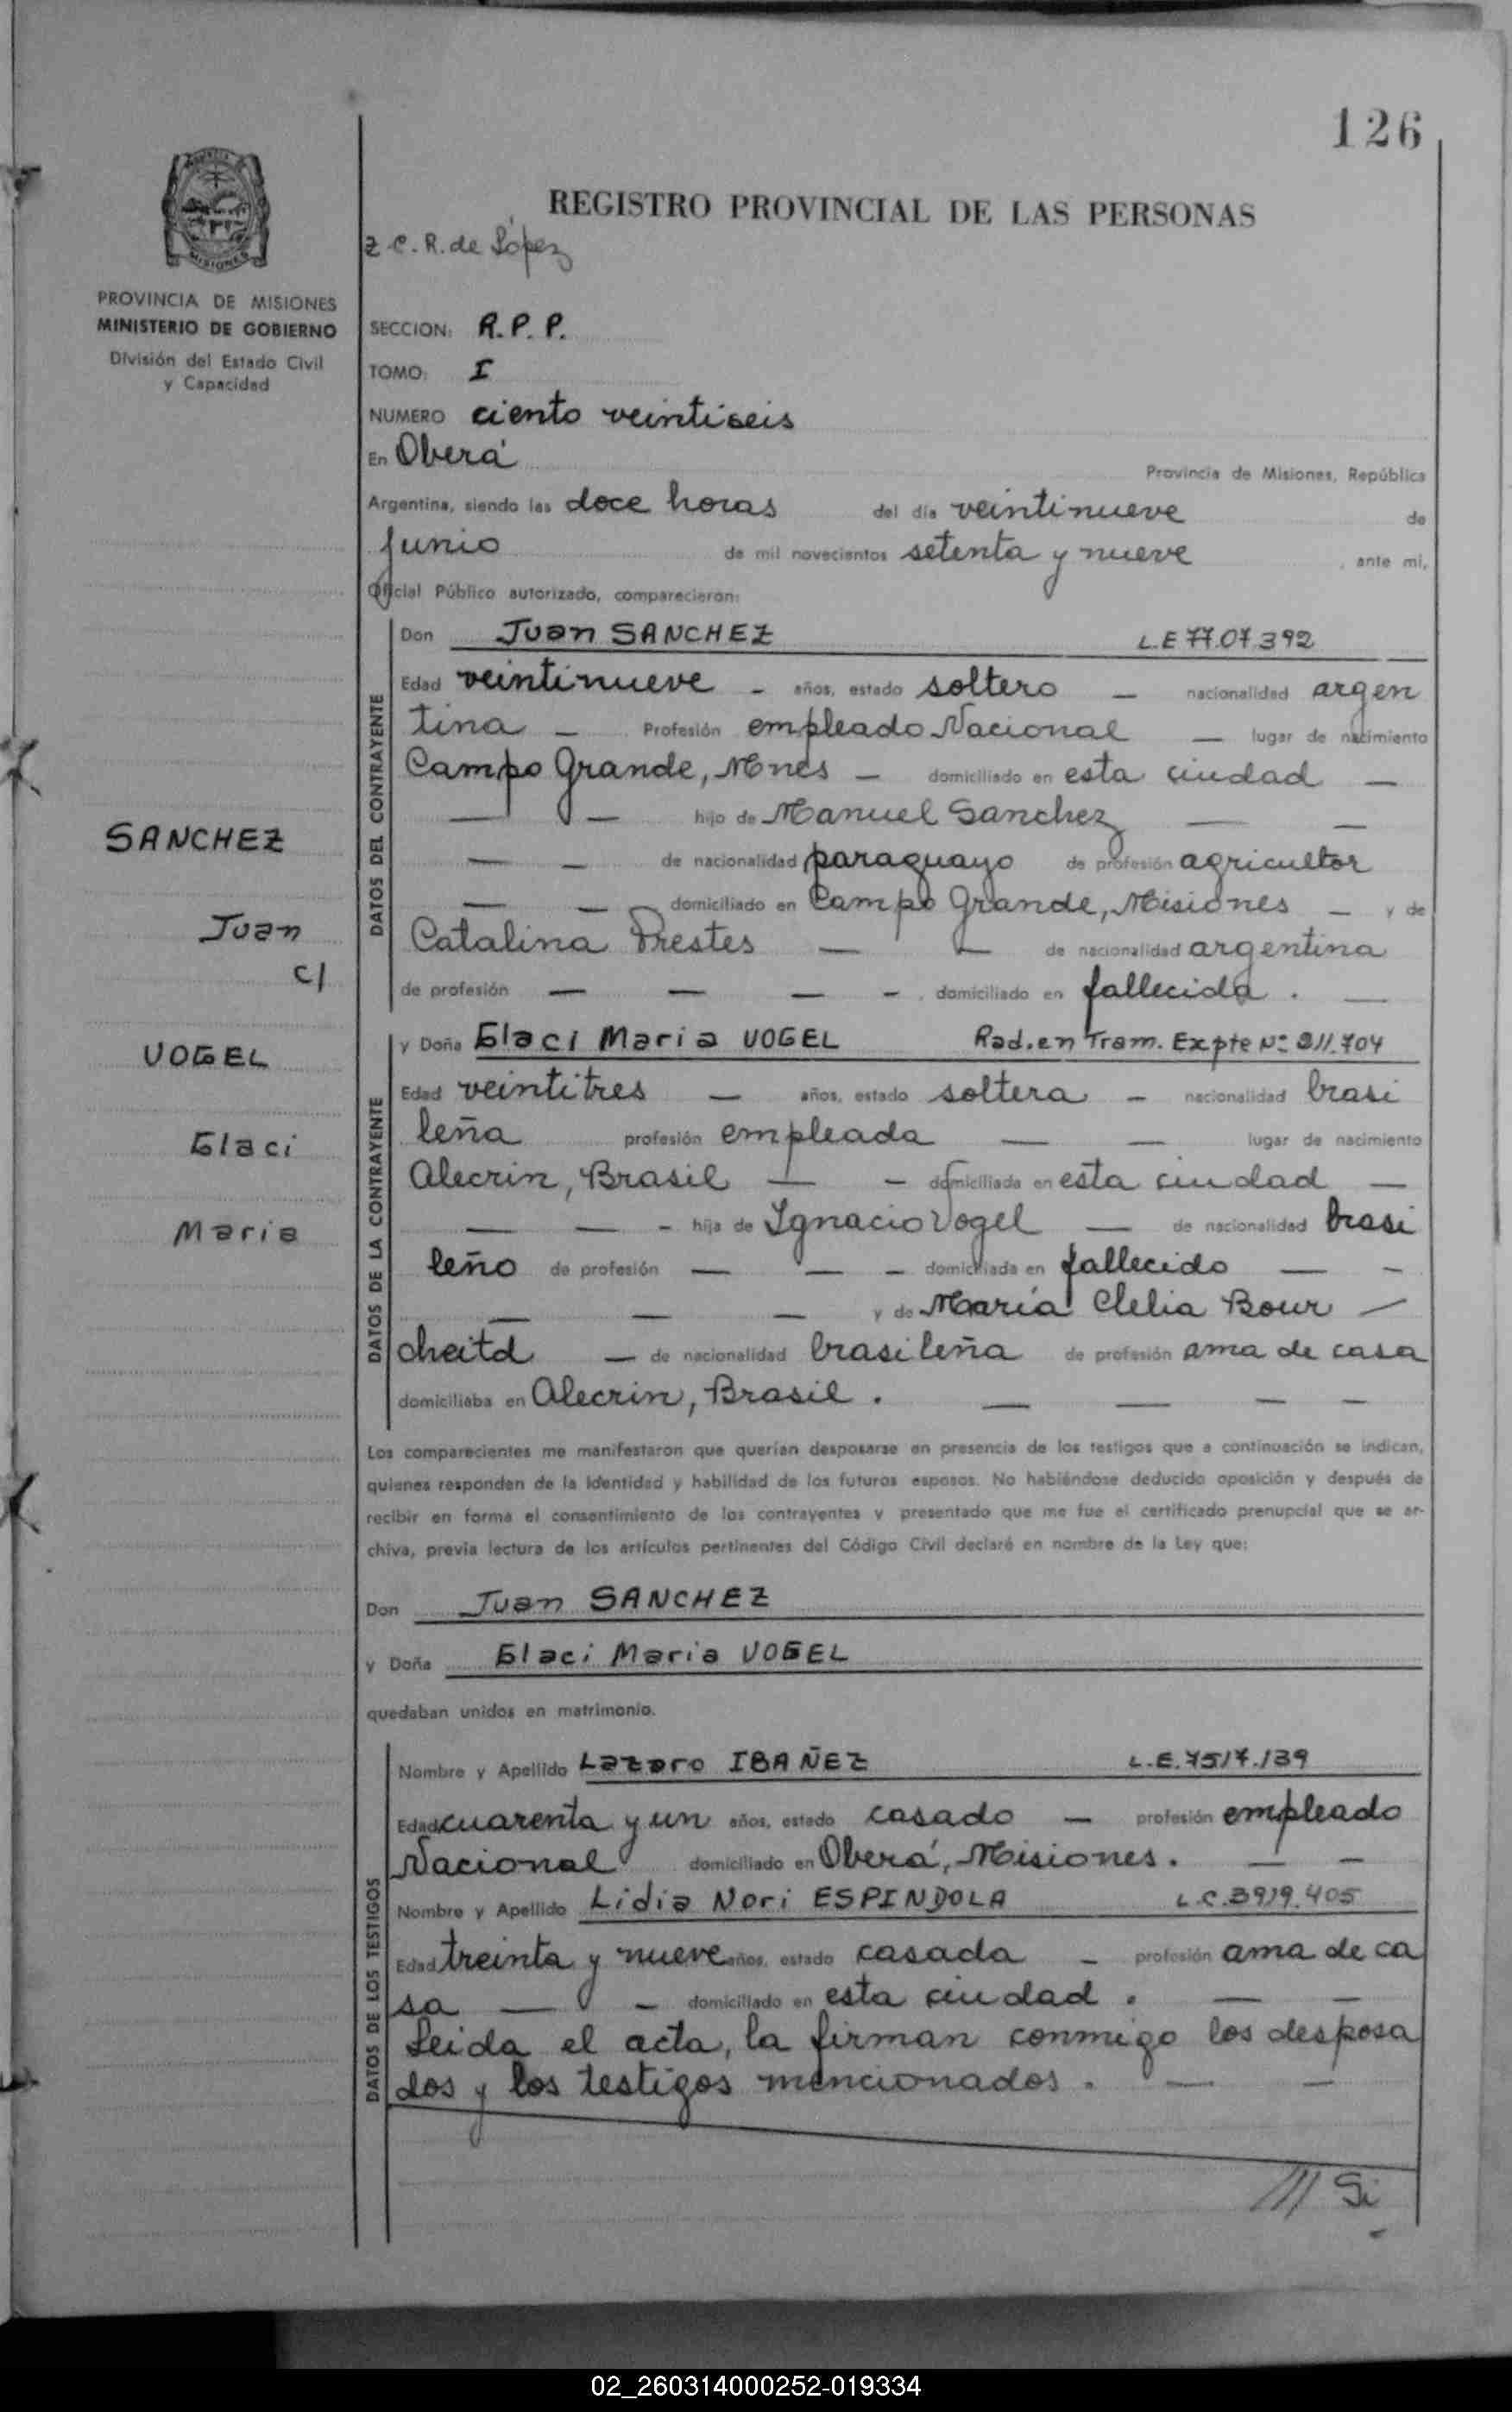 126
REGISTRO PROVINCIAL DE LAS PERSONAS
Z C. R. de López
PROVINCIA DE MISIONES
MINISTERIO DE GOBIERNO
División del Estado Civil
y Capacidad
SECCION: R.P.P.
TOMO: I
NUMERO ciento veintiseis
En Oberá Provincia de Misiones, República
Argentina, siendo las doce horas del día veintinueve de
Junio de mil novecientos setenta y nueve, ante mi,
Oficial Público autorizado, comparecieron:
SANCHEZ
Juan
c/
VOGEL
Glaci
Maria
DATOS DEL CONTRAYENTE
Don Juan SANCHEZ L.E 77.07.392
Edad veintinueve - años, estado soltero — nacionalidad argen
tina — Profesión empleado Nacional — lugar de nacimiento
Campo Grande, Mnes — domiciliado en esta ciudad —
— — hijo de Manuel Sanchez — —
— — de nacionalidad paraguayo de profesión agricultor
— — domiciliado en Campo Grande, Misiones — y de
Catalina Prestes — — de nacionalidad argentina
de profesión — — — - domiciliado en fallecida. —
DATOS DE LA CONTRAYENTE
y Doña Glaci Maria VOGEL Rad. en Tram. Expte Nº 211.704
Edad veintitres — años, estado soltera - nacionalidad brasi
leña profesión empleada — — lugar de nacimiento
Alecrin, Brasil — - domiciliada en esta ciudad —
— — - hija de Ignacio Vogel — de nacionalidad brasi
leño de profesión — — - domiciliada en fallecido — -
— — — y de María Clelia Bour —
cheitd — de nacionalidad brasileña de profesión ama de casa
domiciliaba en Alecrin, Brasil. — — — -
Los comparecientes me manifestaron que querían desposarse en presencia de los testigos que a continuación se indican,
quienes responden de la identidad y habilidad de los futuros esposos. No habiéndose deducido oposición y después de
recibir en forma el consentimiento de los contrayentes y presentado que me fue el certificado prenupcial que se ar-
chiva, previa lectura de los artículos pertinentes del Código Civil declaré en nombre de la Ley que:
Don Juan SANCHEZ
y Doña Glaci Maria VOGEL
quedaban unidos en matrimonio.
DATOS DE LOS TESTIGOS
Nombre y Apellido Lazaro IBAÑEZ L.E. 7517.139
Edad cuarenta y un años, estado casado — profesión empleado
Nacional domiciliado en Oberá, Misiones. — -
Nombre y Apellido Lidia Nori ESPINDOLA L.C. 3919.405
Edad treinta y nueve años, estado casada - profesión ama de ca
sa — - domiciliado en esta ciudad. — —
Leida el acta, la firman conmigo los desposa
dos y los testigos mencionados. — —
/// Si
02_260314000252-019334